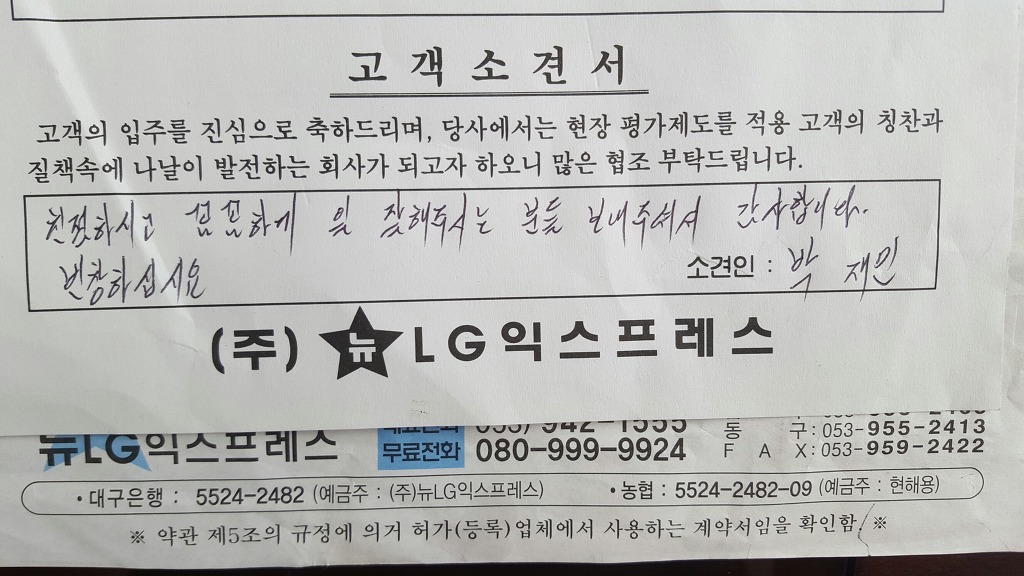 고객소견서
고객의 입주를 진심으로 축하드리며, 당사에서는 현장 평가제도를 적용 고객의 칭찬과
질책속에 나날이 발전하는 회사가 되고자 하오니 많은 협조 부탁드립니다.
친절하시고 꼼꼼하게 일 잘해주시는 분들 보내주셔서 감사합니다.
번창하십시요
소견인 : 박재인
(주) 뉴 LG익스프레스
뉴LG익스프레스
대표전화 053) 942-1555
무료전화 080-999-9924
동 구: 053-955-2413
F A X: 053-959-2422
• 대구은행 : 5524-2482 (예금주 : (주)뉴LG익스프레스) • 농협 : 5524-2482-09 (예금주 : 현해용)
※ 약관 제5조의 규정에 의거 허가(등록)업체에서 사용하는 계약서임을 확인함. ※